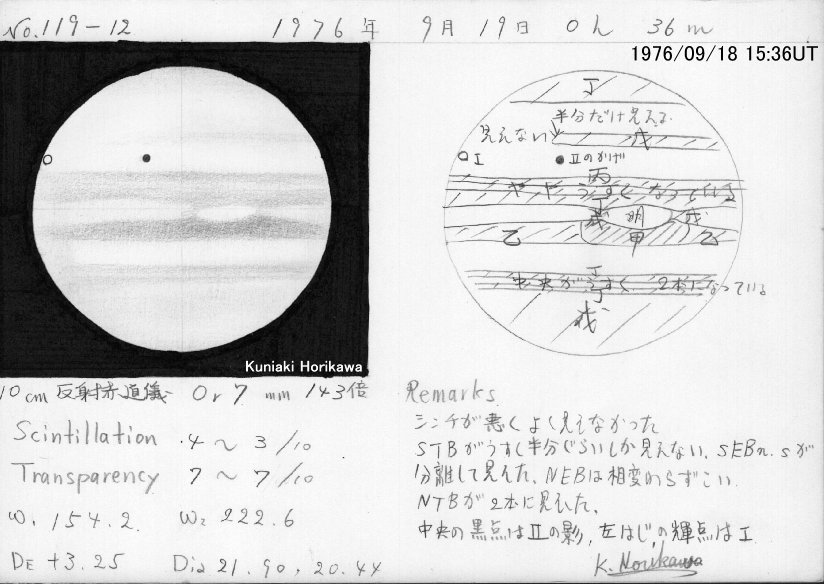 No.119-12 1976年 9月 19日 0h 36m
1976/09/18 15:36UT
丁
半分だけ見える
見えない 戊
I IIのかげ
丙
ややうすくなっている
丁
戊 明 戊
乙 甲 乙
丁
中央がうすく 2本になっている
丁
戊
Kuniaki Horikawa
10cm 反射赤道儀 Or 7mm 143倍
Scintillation 4~3/10
Transparency 7~7/10
ω1 154.2 ω2 222.6
DE +3.25 Dia 21.90, 20.44
Remarks
シンチが悪くよく見えなかった
STBがうすく半分ぐらいしか見えない、SEBn.sが
分離して見えた、NEBは相変わらずこい
NTBが2本に見えた、
中央の黒点はIIの影,左はじの輝点はI
K. Horikawa